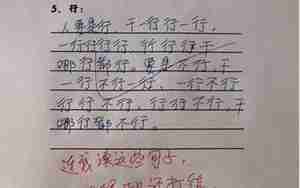 5、行：
人要是行，干一行行一行，
一行行行行，行行行干
哪行都行。要是不行，干
一行不行一行，一行不行
行行不行，行行不行，干
哪行都不行。
连我读这些句子，